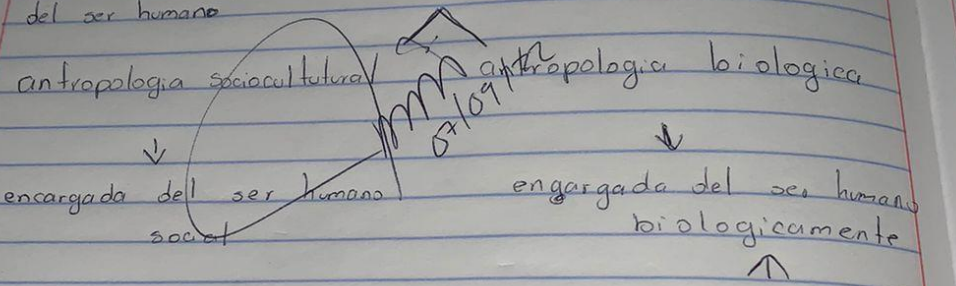 del ser humano
antropologia sociocultutural antropologia biologica
6x109
encargada dell ser humano engargada del ser humano
social biologicamente